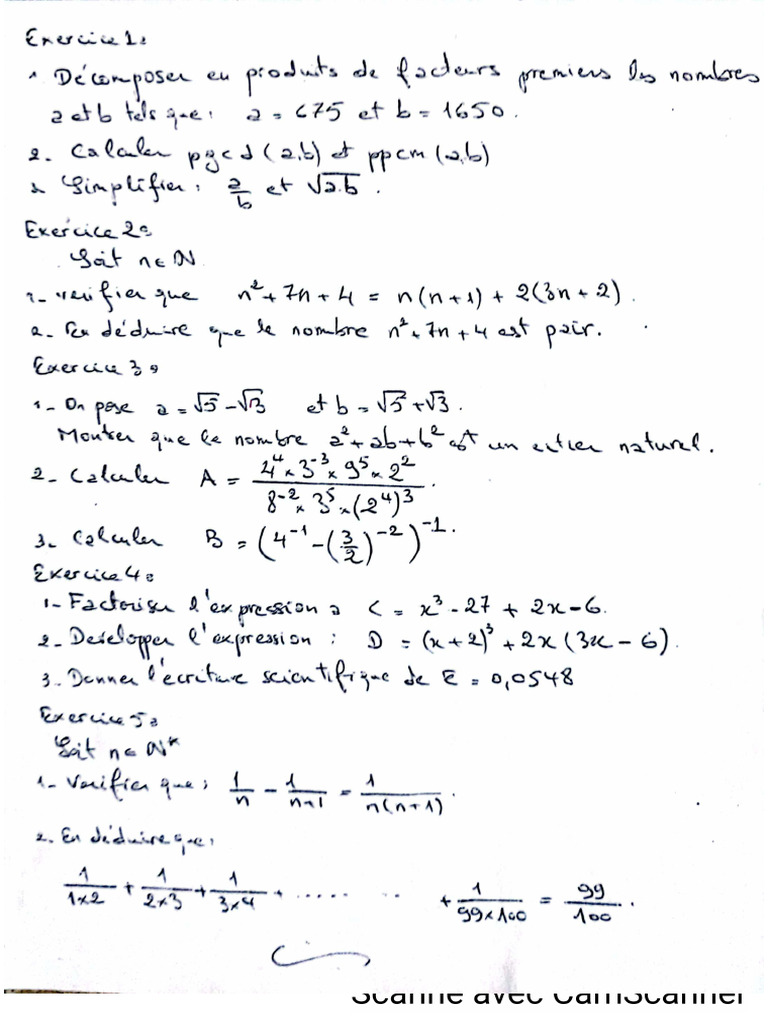 Exercice 1:
1 Décomposer en produits de facteurs premiers les nombres
a et b tels que: a = 675 et b = 1650.
2. Calculer pgcd (a,b) et ppcm (a,b)
3 Simplifier: a/b et √a.b.
Exercice 2:
Soit n ∈ ℕ
1- verifier que n² + 7n + 4 = n(n + 1) + 2(3n + 2).
2- En déduire que le nombre n² + 7n + 4 est pair.
Exercice 3:
1- On pose a = √5 - √3 et b = √5 + √3.
Montrer que le nombre a² + ab + b² est un entier naturel.
2- Calculer A = (4⁴ × 3⁻³ × 9⁵ × 2²) / (8⁻² × 3⁵ × (2⁴)³).
3- Calculer B = (4⁻¹ - (3/2)⁻²)⁻¹.
Exercice 4:
1- Factoriser l'expression: C = x³ - 27 + 2x - 6.
2- Developper l'expression: D = (x + 2)³ + 2x (3x - 6).
3. Donner l'écriture scientifique de E = 0,0548
Exercice 5:
Soit n ∈ ℕ*
1- Verifier que: 1/n - 1/(n+1) = 1/(n(n+1)).
2. En déduire que:
1/(1×2) + 1/(2×3) + 1/(3×4) + ..... .. + 1/(99×100) = 99/100.
Scanné avec CamScanner